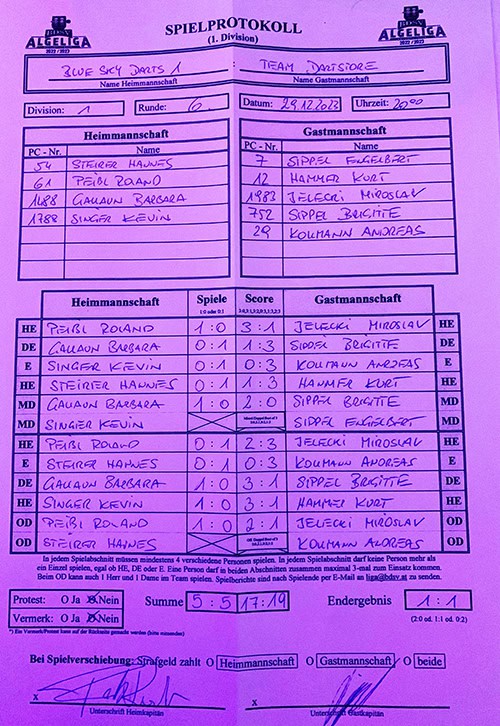 SPIELPROTOKOLL
(1. Division)
ALGELIGA 2022/2023
ALGELIGA 2022/2023
BLUE SKY DARTS 1 : TEAM DARTSTORE
Name Heimmannschaft Name Gastmannschaft
Division: 1 Runde: 6. Datum: 29.12.2023 Uhrzeit: 20⁰⁰
Heimmannschaft Gastmannschaft
PC - Nr. Name PC - Nr. Name
54 STEIRER HANNES 7 SIPPEL ENGELBERT
61 PEIBL ROLAND 12 HAMMER KURT
1488 GALLAUN BARBARA 1983 JELECKI MIROSLAV
1788 SINGER KEVIN 752 SIPPEL BRIGITTE
29 KOLLMANN ANDREAS
Heimmannschaft Spiele Score Gastmannschaft
1:0 oder 0:1
HE PEIBL ROLAND 1:0 3:1 JELECKI MIROSLAV HE
DE GALLAUN BARBARA 0:1 1:3 SIPPEL BRIGITTE DE
E SINGER KEVIN 0:1 0:3 KOLLMANN ANDREAS E
HE STEIRER HANNES 0:1 1:3 HAMMER KURT HE
MD GALLAUN BARBARA 1:0 2:0 SIPPEL BRIGITTE MD
MD SINGER KEVIN SIPPEL ENGELBERT MD
HE PEIBL ROLAND 0:1 2:3 JELECKI MIROSLAV HE
E STEIRER HANNES 0:1 0:3 KOLLMANN ANDREAS E
DE GALLAUN BARBARA 1:0 3:1 SIPPEL BRIGITTE DE
HE SINGER KEVIN 1:0 3:1 HAMMER KURT HE
OD PEIBL ROLAND 1:0 2:1 JELECKI MIROSLAV OD
OD STEIRER HANNES KOLLMANN ANDREAS OD
In jedem Spielabschnitt müssen mindestens 4 verschiedene Personen spielen. In jedem Spielabschnitt darf keine Person mehr als
ein Einzel spielen, egal ob HE, DE oder E. Eine Person darf in beiden Abschnitten zusammen maximal 3-mal zum Einsatz kommen.
Beim OD kann auch 1 Herr und 1 Dame im Team spielen. Spielberichte sind nach Spielende per E-Mail an liga@bdsv.at zu senden.
Protest: O Ja O Nein Summe 5:5 17:19 Endergebnis 1:1
Vermerk: O Ja O Nein (2:0 od. 1:1 od. 0:2)
*) Ein Vermerk/Protest kann auf der Rückseite gemacht werden (bitte ankreuzen)
Bei Spielverschiebung: Strafgeld zahlt O Heimmannschaft O Gastmannschaft O beide
X X
Unterschrift Heimkapitän Unterschrift Gastkapitän